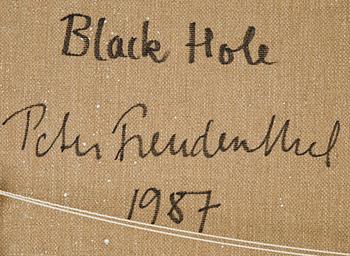 Black Hole
Peter Freudenthal
1987